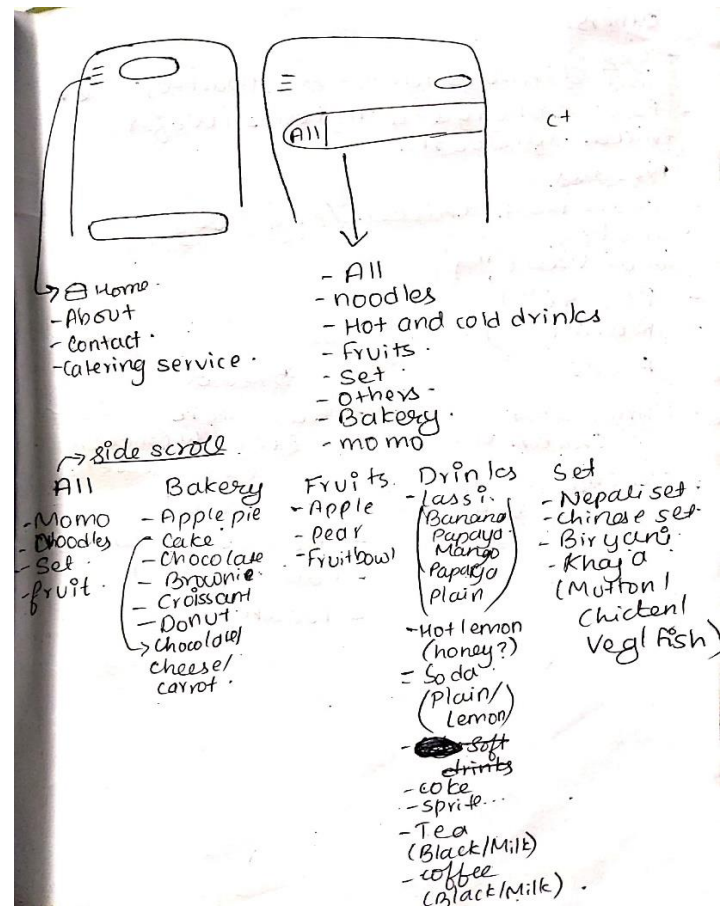 All
c+
Home.
- About
- Contact.
- Catering service.
- All
- noodles
- Hot and cold drinks
- Fruits.
- Set.
- Others -
- Bakery.
- momo
→ side scroll
All
- Momo
- Noodles
- Set
- fruit.
Bakery
- Apple pie
- Cake
- Chocolate
- Brownie.
- Croissant
- Donut
→ Chocolate/
cheese/
carrot.
Fruits.
- Apple
- pear
- Fruitbowl
Drinks
- lassi.
(Banana
Papaya
Mango
Papaya
Plain)
- Hot lemon
(honey?)
- Soda
(Plain/
Lemon)
- Soft
drinks
- coke
- sprite...
- Tea
(Black/Milk)
- coffee
(Black/Milk).
Set
- Nepali set.
- Chinese set.
- Biryani.
- Khaja
(Mutton/
Chicken/
Veg/fish)